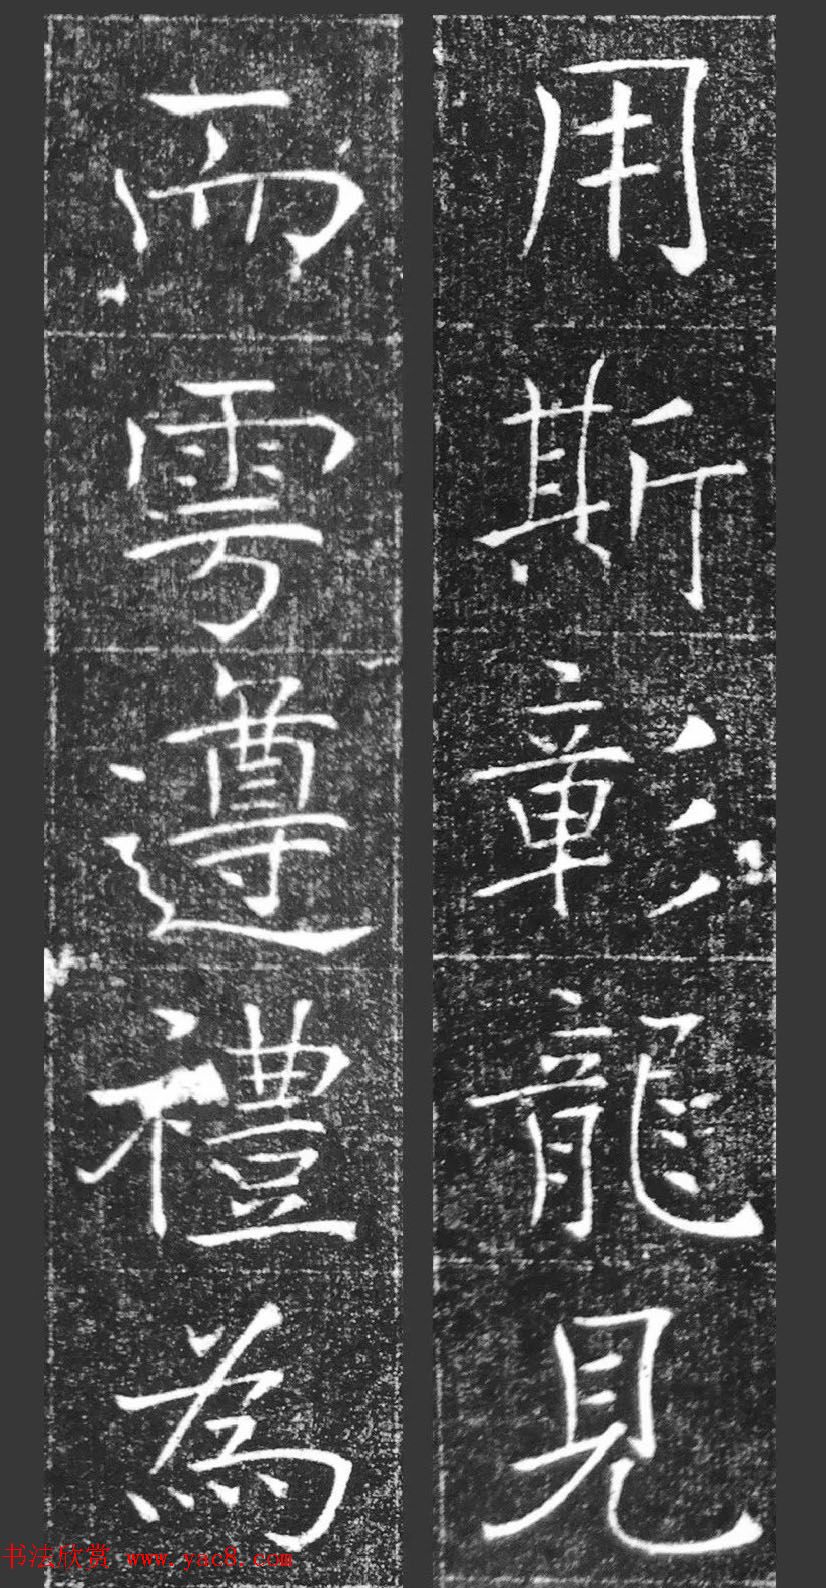 用斯彰龍見
而雩遵禮為
书法欣赏 www.yac8.com